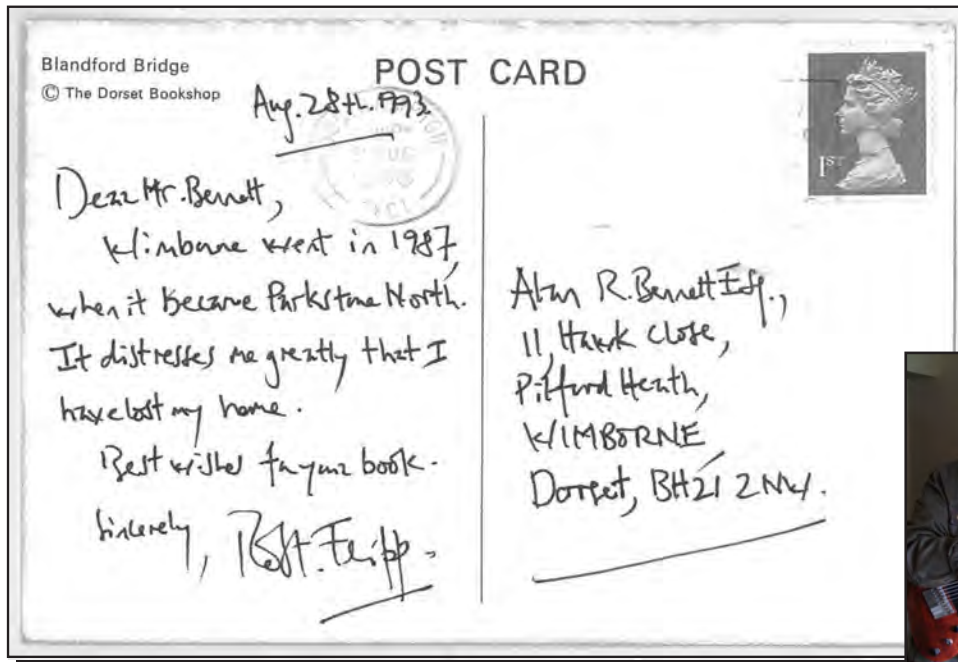 Blandford Bridge
© The Dorset Bookshop
POST CARD
Aug. 28th. 1993.
Dear Mr. Bennett,
Wimborne went in 1987,
when it became Parkstone North.
It distresses me greatly that I
have lost my home.
Best wishes for your book.
Sincerely, Robt. Fripp.
1ST
Alan R. Bennett Esq.,
11, Hawk Close,
Pilford Heath,
WIMBORNE
Dorset, BH21 2NW.